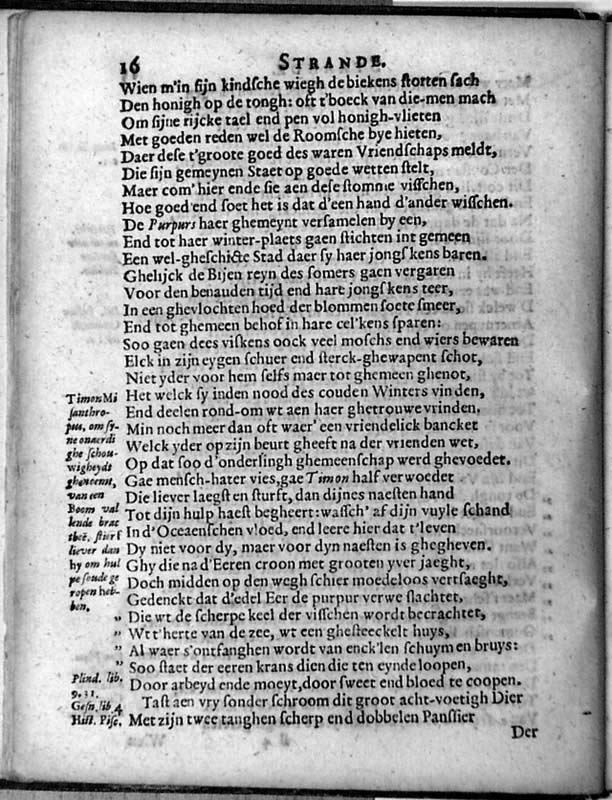 16 STRANDE.
Wien m'in sijn kindsche wiegh de biekens storten sach
Den honigh op de tongh: oft t'boeck van die-men mach
Om sijne rijcke tael end pen vol honigh-vlieten
Met goeden reden wel de Roomsche bye hieten,
Daer dese t'groote goed des waren Vriendschaps meldt,
Die sijn gemeynen Staet op goede wetten stelt,
Maer com' hier ende sie aen dese stomme visschen,
Hoe goed end soet het is dat d'een hand d'ander wisschen.
De Purpurs haer ghemeynt versamelen by een,
End tot haer winter-plaets gaen stichten int gemeen
Een wel-gheschicte Stad daer sy haer jongskens baren.
Ghelijck de Bijen reyn des somers gaen vergaren
Voor den benauden tijd end hare jongskens teer,
In een ghevlochten hoed der blommen soete smeer,
End tot ghemeen behof in hare cel'kens sparen:
Soo gaen dees viskens oock veel moschs end wiers bewaren
Elck in zijn eygen schuer end sterck-ghewapent schot,
Niet yder voor hem selfs maer tot ghemeen ghenot,
Het welck sy inden nood des couden Winters vinden,
End deelen rond-om wt aen haer ghetrouwe vrinden.
Min noch meer dan oft waer' een vriendelick bancket
Welck yder op zijn beurt gheeft na der vrienden wet,
Op dat soo d'onderlingh ghemeenschap werd ghevoedet.
Gae mensch-hater vies, gae Timon half verwoedet
Die liever laegst en sturft, dan dijnes naesten hand
Tot dijn hulp haest begheert: wassch' af dijn vuyle schand
In d'Oceaenschen vloed, end leere hier dat t'leven
Dy niet voor dy, maer voor dyn naesten is ghegheven.
Ghy die na d'Eeren croon met grooten yver jaeght,
Doch midden op den wegh schier moedeloos vertsaeght,
Gedenckt dat d'edel Eer de purpur verwe slachtet,
" Die wt de scherpe keel der visschen wordt betrachtet,
" Wt t'herte van de zee, wt een ghesteeckelt huys,
" Al waer s'ontfanghen wordt van enck'len schuym en bruys:
" Soo staet der eeren krans dien die ten eynde loopen,
Door arbeyd ende moeyt, door sweet end bloed te coopen.
Tast aen vry sonder schroom dit groot acht-voetigh Dier
Met zijn twee tanghen scherp end dobbelen Panssier
Der
Timon Mi
santhro-
pus, om sy-
ne onaerdi
ghe schou-
wigheydt
ghenoemt,
van een
Boom val
lende brac
thẽ. stierf
liever dan
hy om hul
pe soude ge
ropen heb-
ben.
Plind. lib.
9. 31.
Gesn. lib 4
Hist. Pisc.